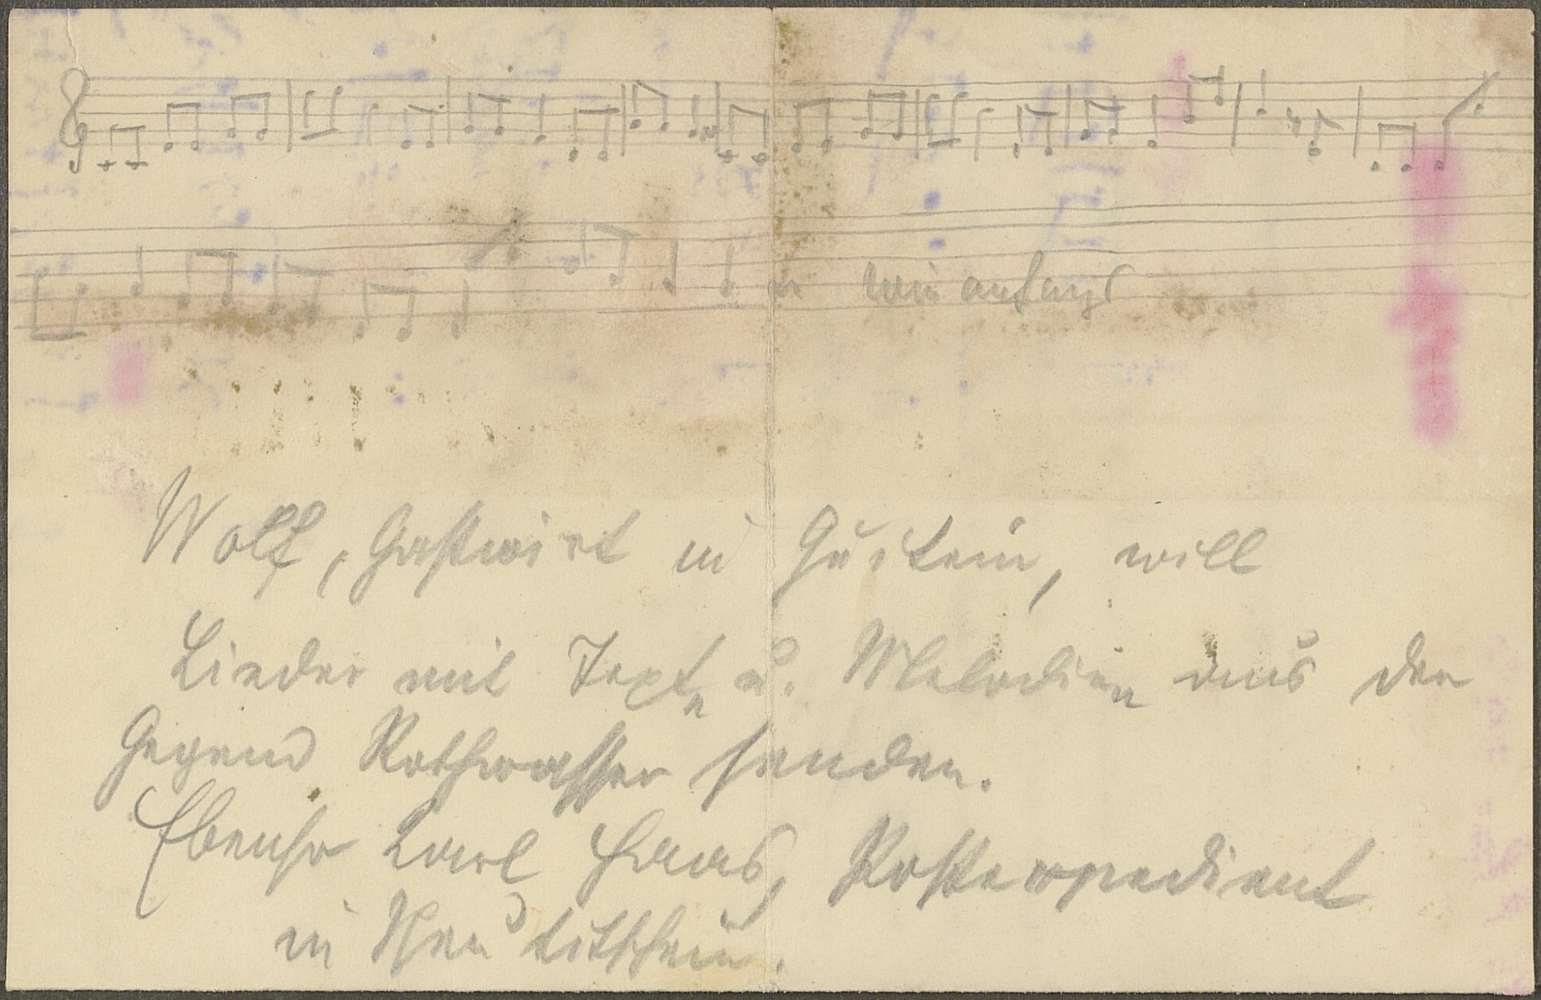 wie anfangs
Wolf, Gastwirt in Hustein, will
Lieder mit Texten u. Melodien aus der
Gegend Rothwasser senden.
Ebenso Karl Haas, Postexpedient
in Neu Titschein.